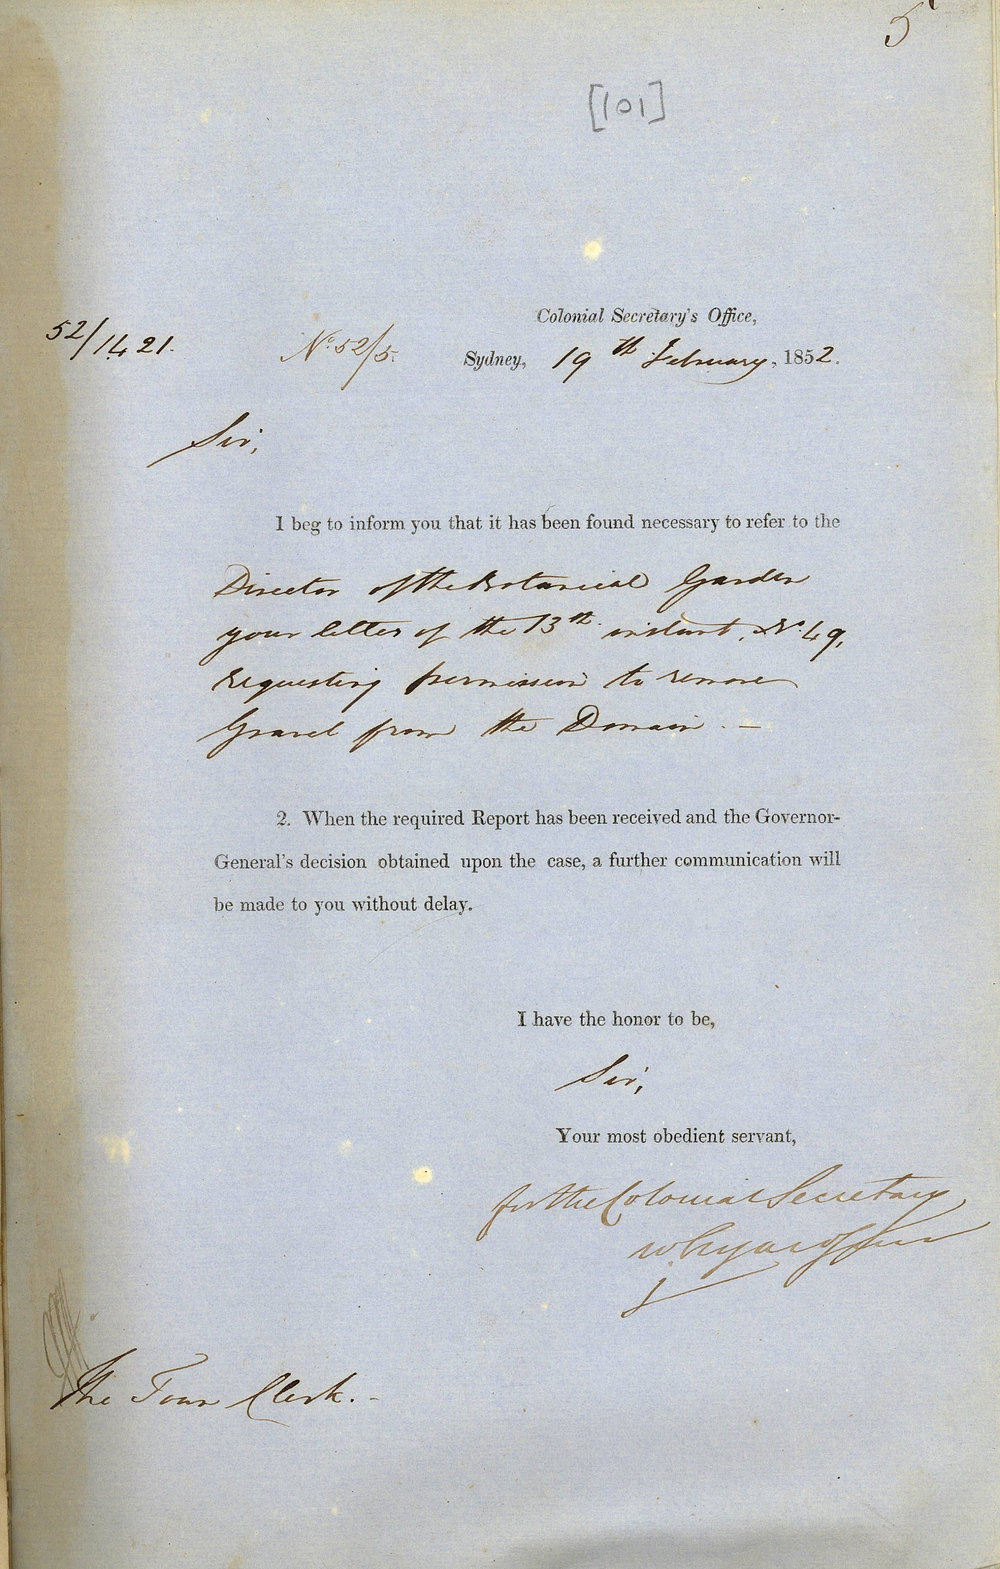 5
[101]
Colonial Secretary's Office,
52/1421. No. 52/5. Sydney, 19th February, 1852.
Sir,
I beg to inform you that it has been found necessary to refer to the
Director of the Botanical Garden
your letter of the 13th instant, No. 49,
requesting permission to remove
Gravel from the Domain. —
2. When the required Report has been received and the Governor-
General's decision obtained upon the case, a further communication will
be made to you without delay.
I have the honor to be,
Sir,
Your most obedient servant,
for the Colonial Secretary
The Town Clerk. -